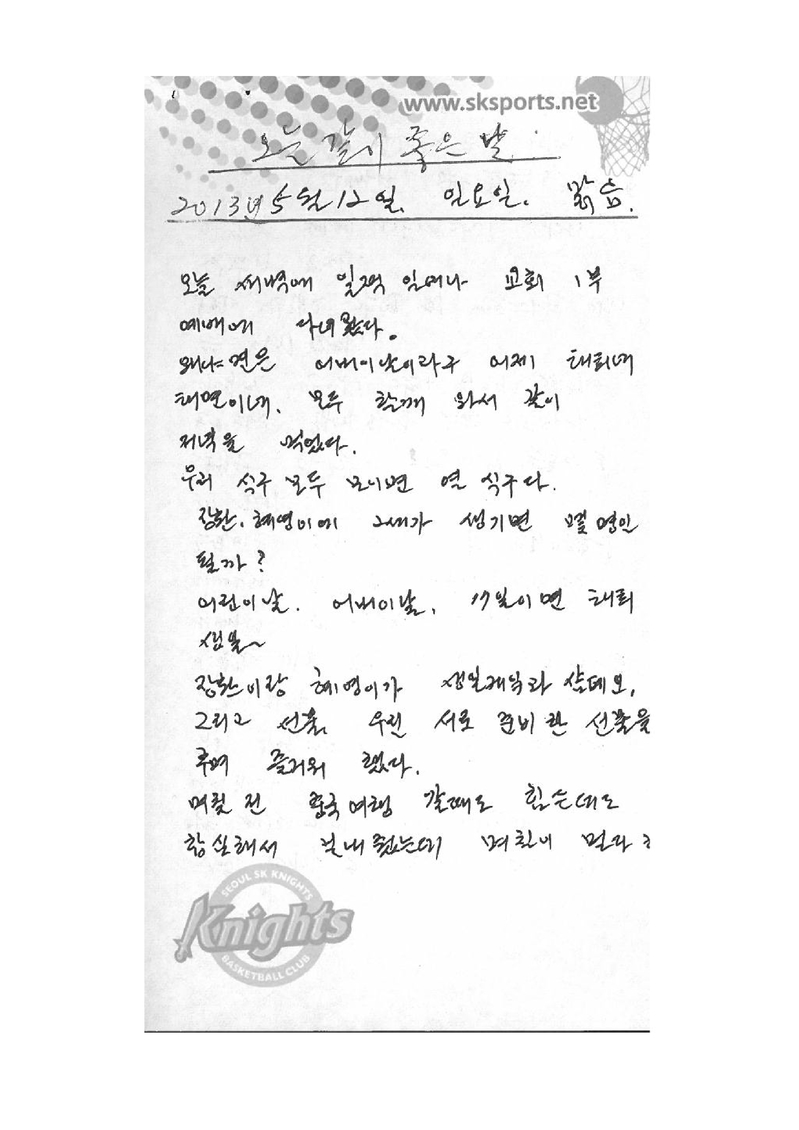 www.sksports.net
오늘 같이 좋은 날.
2013년 5월 12일. 일요일. 맑음.
오늘 새벽에 일찍 일어나 교회 1부
예배에 다녀왔다.
왜냐면은 어버이날이라구 어제 태희네
태면이네. 모두 함께 와서 같이
저녁을 먹었다.
우리 식구 모두 모이면 열 식구다.
장환. 혜영이에 2세가 생기면 몇 명인
될까?
어린이날. 어버이날, 17일이면 태희
생일~
장환이랑 혜영이가 생일케익과
그리고 선물, 우린 서로 준비한 선물을
주며 즐거워 했다.
며칠 전 중국여행 갈때도 힘든데도
환실해서 보내줬는데 며칠이 멀다
SEOUL SK KNIGHTS
Knights
BASKETBALL CLUB